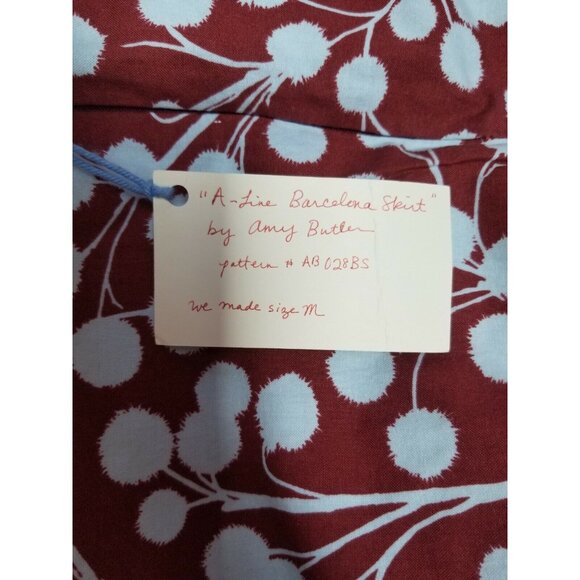 "A-Line Barcelona Skirt"
by Amy Butler
pattern # AB028BS
we made size M